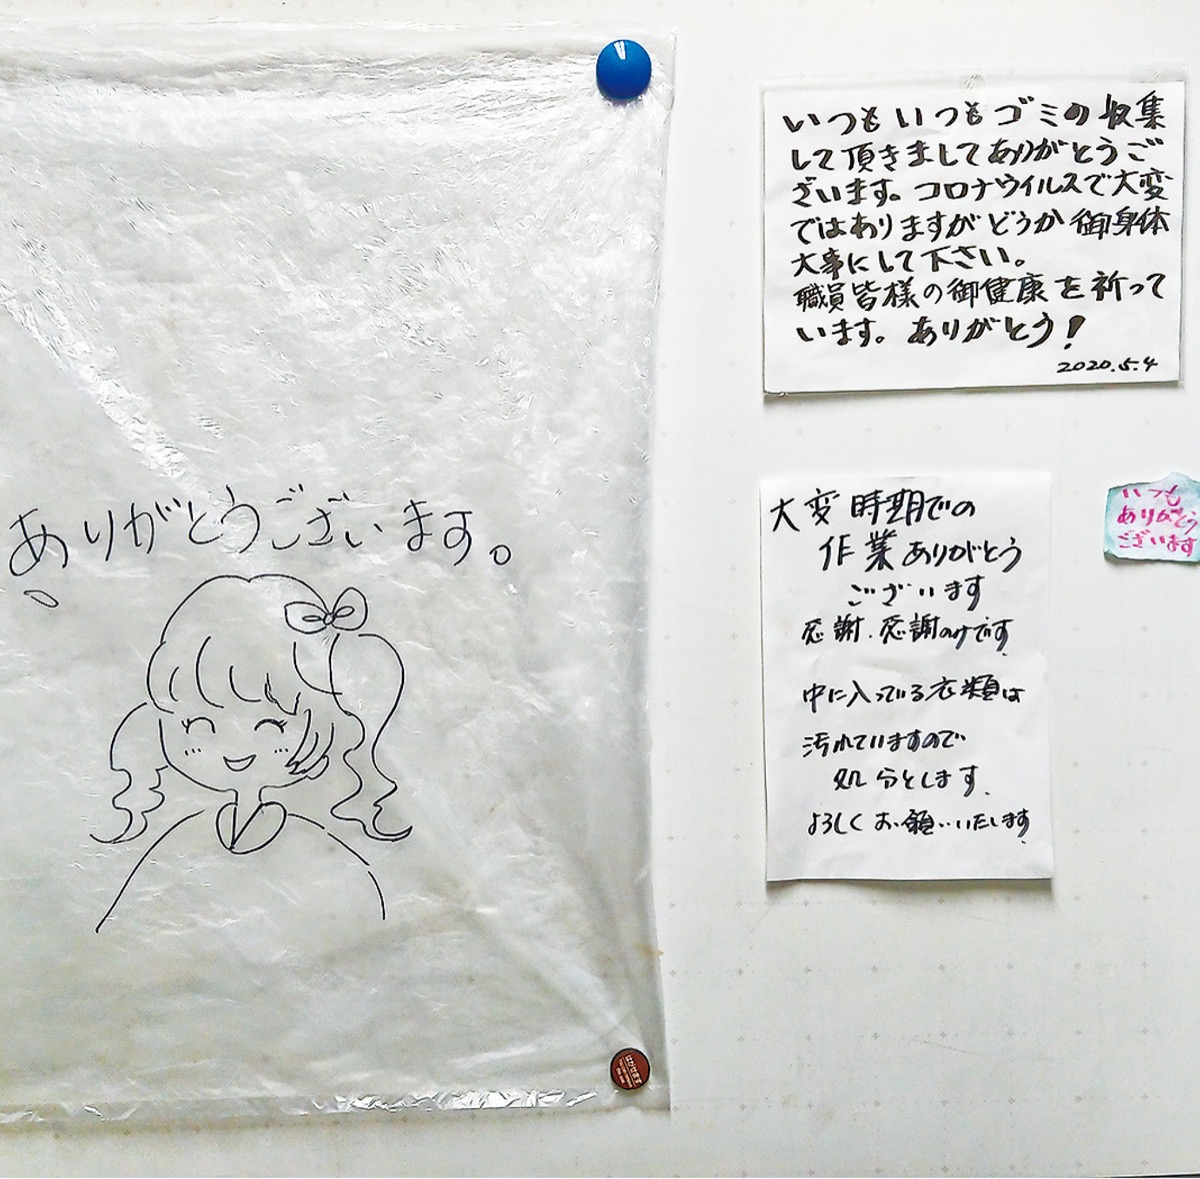 ありがとうございます。
いつもいつもゴミの収集
して頂きましてありがとうご
ざいます。コロナウイルスで大変
ではありますがどうか御身体
大事にして下さい。
職員皆様の御健康を祈って
います。ありがとう!
2020.5.4
大変時期での
作業ありがとう
ございます
感謝.感謝のけです
中に入っている衣類は
汚れていますので
処分とします
よろしくお願いいたします
いつも
ありがとう
ございます